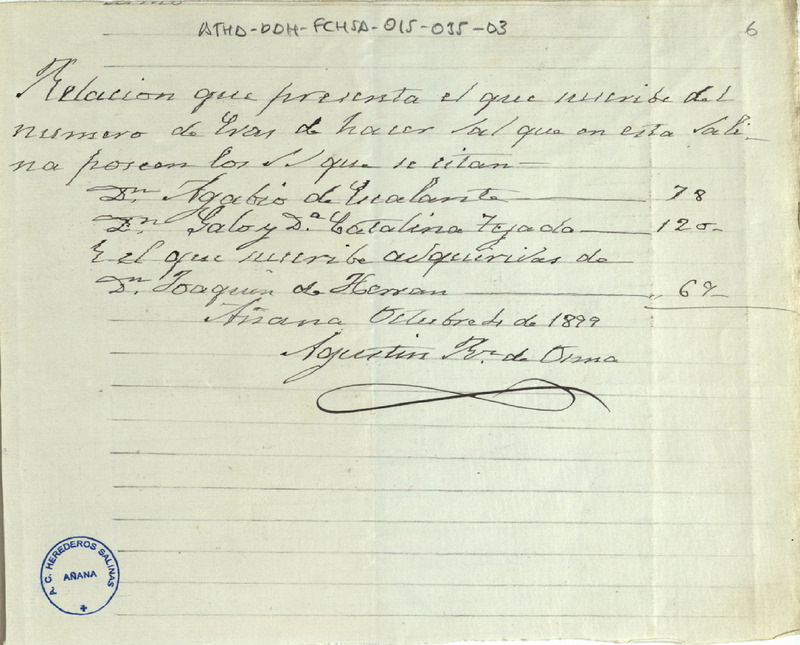 ATHD-DDH-FCHSA-015-035-03
6
Relacion que presenta el que suscribe del
numero de Eras de hacer Sal que en esta Sali-
na poseen los SS que se citan
Dn. Agabio de Escalante 78
Dn. Galo y Da. Catalina Tejada 120-
E el que suscribe adquiridas de
Dn. Joaquin de Herran " 69
Añana Octubre 4 de 1899
Agustin Rz. de Osma
C. HEREDEROS SALINAS
AÑANA